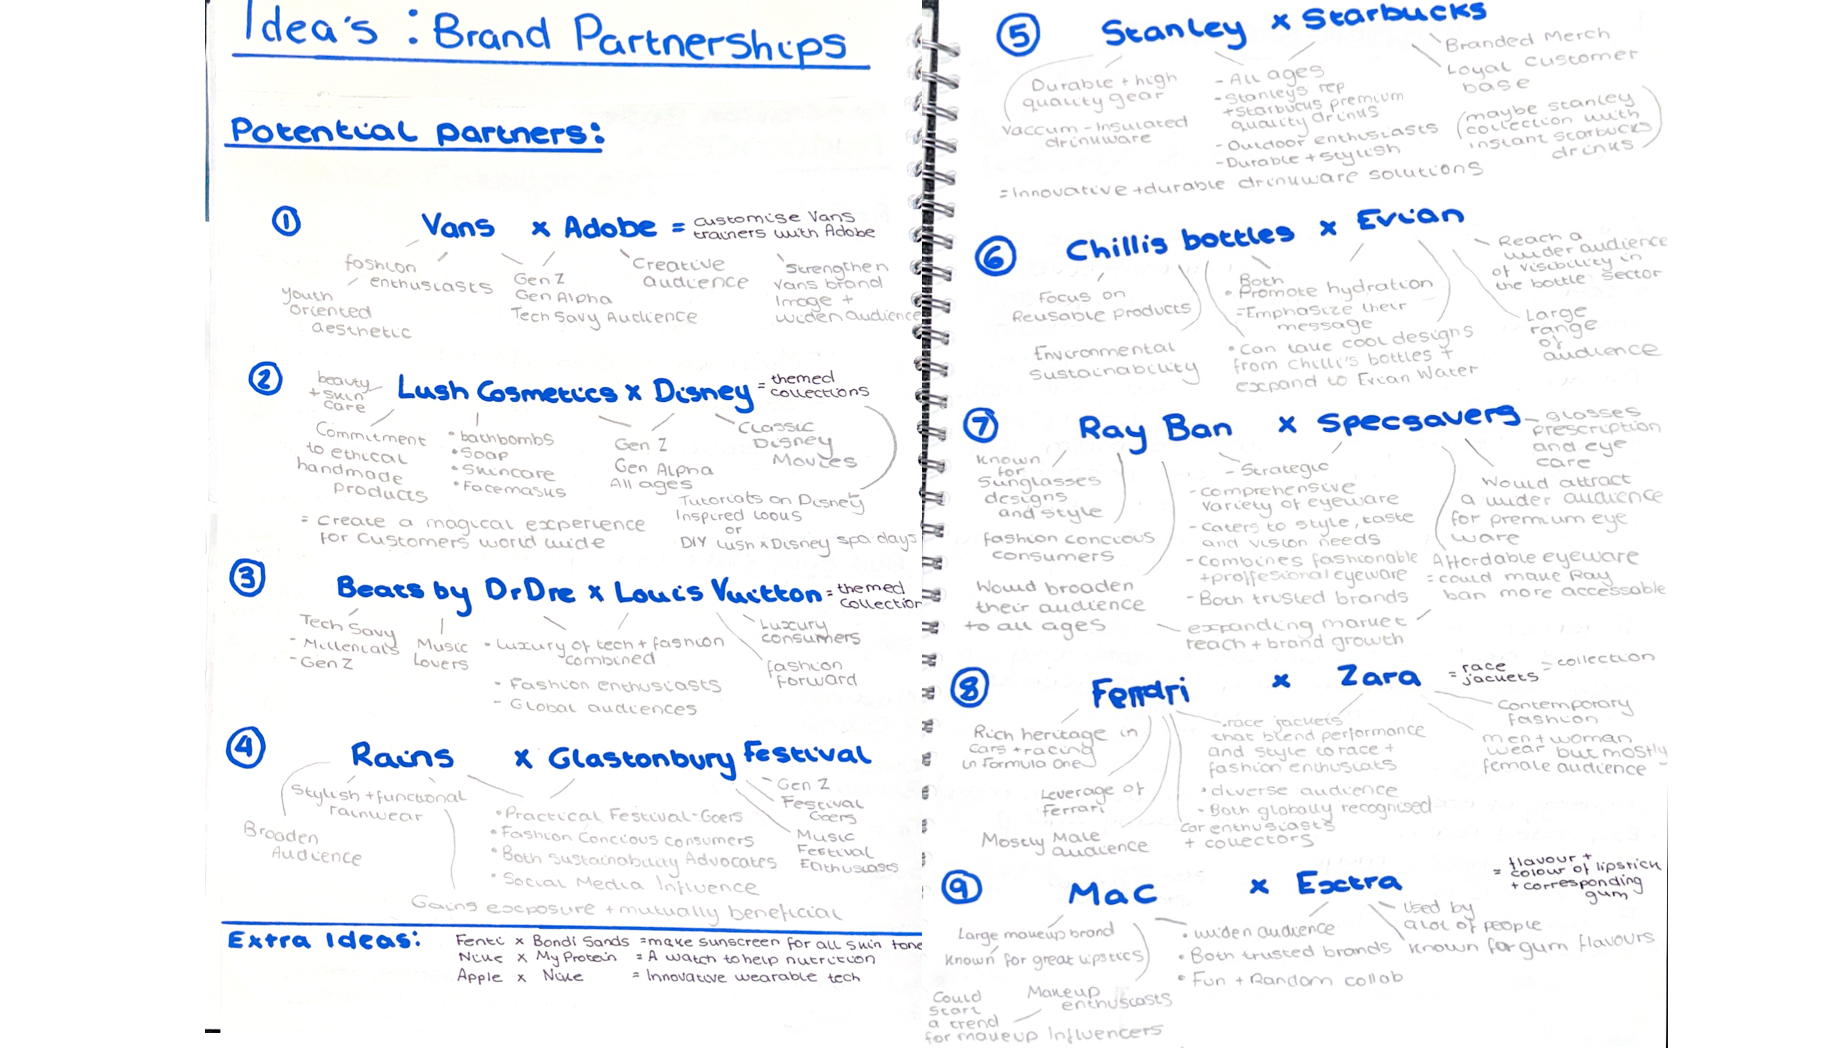 Idea's : Brand Partnerships
Potential partners:
① Vans x Adobe = customise Vans
trainers with Adobe
fashion
enthusiasts
youth
oriented
aesthetic
Gen Z
Gen Alpha
Tech Savy Audience
Creative
audience
Strengthen
Vans brand
Image +
widen audience
② Lush Cosmetics x Disney = themed
collections
beauty
+ skin
care
Commitment
to ethical
handmade
products
• bathbombs
• Soap
• Skincare
• Facemasks
Gen Z
Gen Alpha
All ages
Classic
Disney
Movies
Tutorials on Disney
Inspired looks
or
DIY Lush x Disney spa days
= Create a magical experience
for customers world wide
③ Beats by Dr Dre x Louis Vuitton = themed
collection
Tech Savy
- Millenials
- Gen Z
Music
Lovers
• Luxury of tech + fashion
combined
- Fashion enthusiasts
- Global audiences
Luxury
consumers
fashion
forward
④ Rains x Glastonbury Festival
Stylish + functional
rainwear
Broaden
Audience
• Practical Festival-Goers
• Fashion Concious consumers
• Both sustainability Advocates
• Social Media Influence
Gen Z
Festival
Goers
Music
Festival
Enthusiasts
Gains exposure + mutually beneficial
Extra Ideas:
Fenti x Bondi Sands = make sunscreen for all skin tone
Nike x My Protein = A watch to help nutrition
Apple x Nike = Innovative wearable tech
⑤ Stanley x Starbucks
Durable + high
quality gear
Vaccum-Insulated
drinkware
- All ages
- Stanleys rep
+ Starbucks premium
quality drinks
- Outdoor enthusiasts
- Durable + stylish
Branded Merch
Loyal customer
base
(maybe stanley
collection with
instant starbucks
drinks)
= Innovative + durable drinkware solutions
⑥ Chillis bottles x Evian
Focus on
Reusable products
Environmental
sustainability
Both
• Promote hydration
= Emphasize their
message
• Can take cool designs
from chilli's bottles +
expand to Evian Water
Reach a
wider audience
of visibility in
the bottle sector
Large
range
of
audience
⑦ Ray Ban x Specsavers
Known
for
Sunglasses
designs
and style
fashion concious
consumers
Would broaden
their audience
to all ages
- Strategic
- comprehensive
variety of eyeware
- caters to style, taste
and vision needs
- Combines fashionable
+ proffesional eyeware
- Both trusted brands
expanding market
reach + brand growth
glasses
prescription
and eye
care
Would attract
a wider audience
for premium eye
ware
Affordable eyeware
= could make Ray
ban more accessable
⑧ Ferrari x Zara = race
jackets = collection
Rich heritage in
cars + racing
in formula One
Leverage of
ferrari
Mostly Male
audience
• race jackets
that blend performance
and style to race +
fashion enthusiats
• diverse audience
• Both globally recognised
Car enthusiasts
+ collectors
Contemporary
fashion
men + woman
wear but mostly
female audience
⑨ Mac x Extra
= flavour +
colour of lipstick
+ corresponding
gum
Large makeup brand
Known for great lipsticks
Makeup
enthusiasts
Could
start
a trend
for makeup Influencers
• widen audience
• Both trusted brands
• Fun + Random collab
Used by
a lot of people
Known for gum flavours